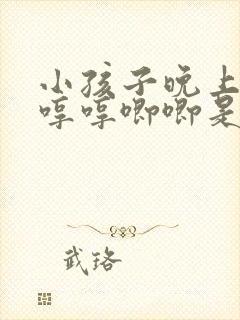 小孩子晚上
哼哼唧唧是
武珞